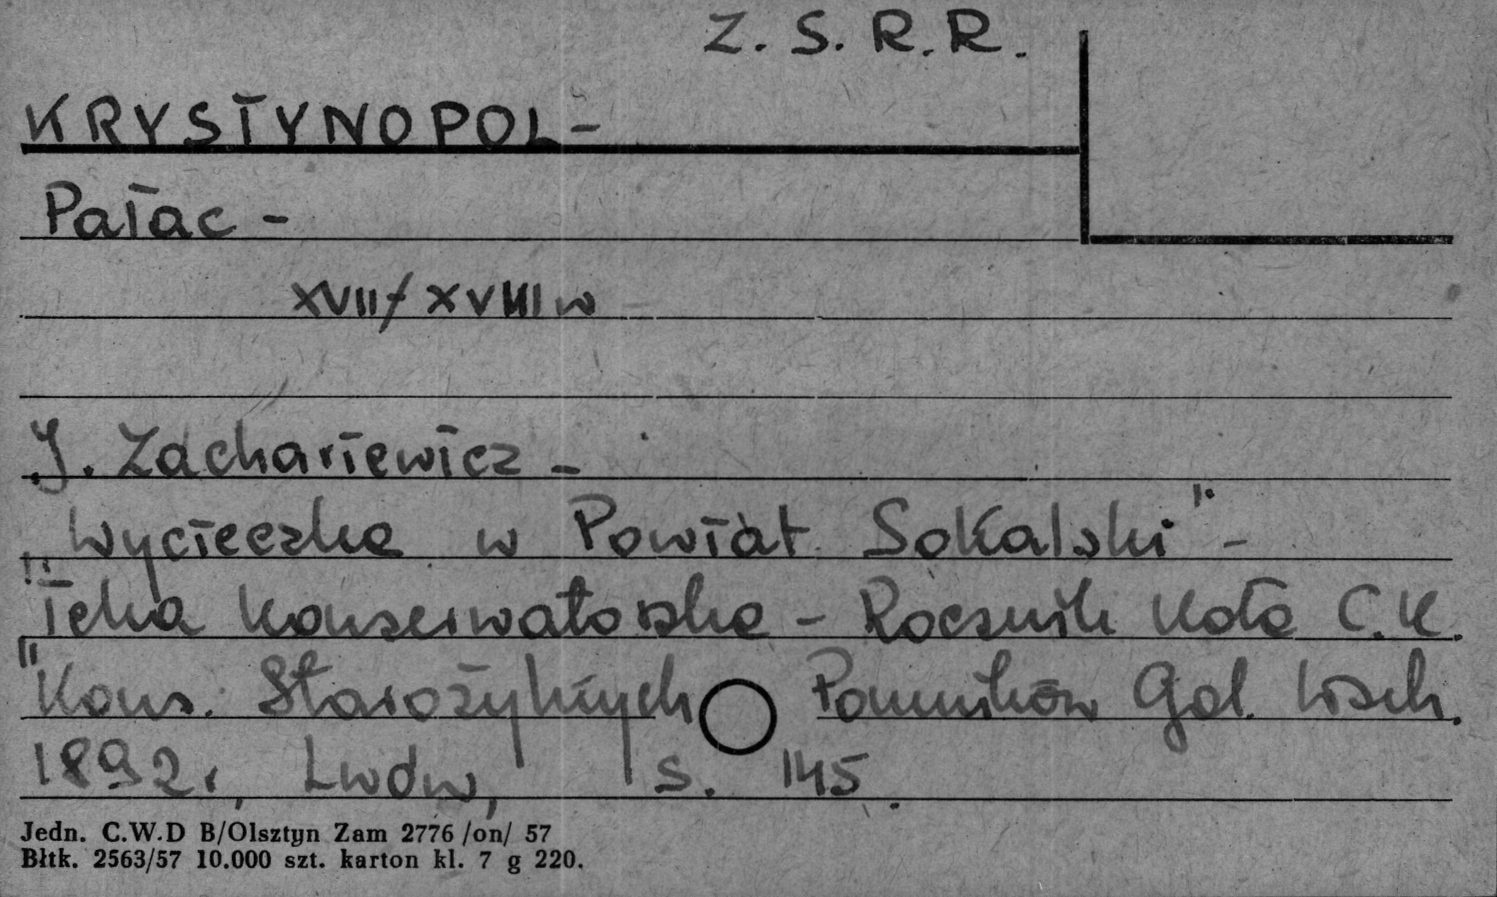 Z. S. R. R.
KRYSTYNOPOL -
Pałac -
XVII/XVIII w
J. Zachariewicz -
"Wycieczka w Powiat Sokalski" -
"Teka Konserwatorska - Rocznik Koła C.K.
Kons. Starożytnych Pomników Gal. Wsch.
1892 r, Lwów, s. 145.
Jedn. C.W.D B/Olsztyn Zam 2776 /on/ 57
Błtk. 2563/57 10.000 szt. karton kl. 7 g 220.